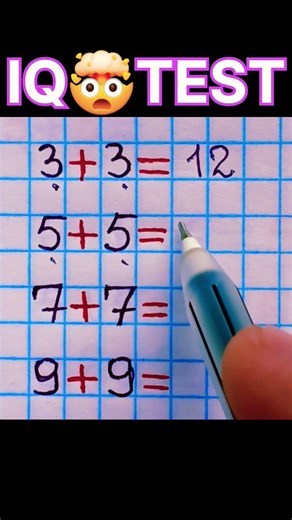 IQ🤯TEST
3+3=12
5+5=
7+7=
9+9=